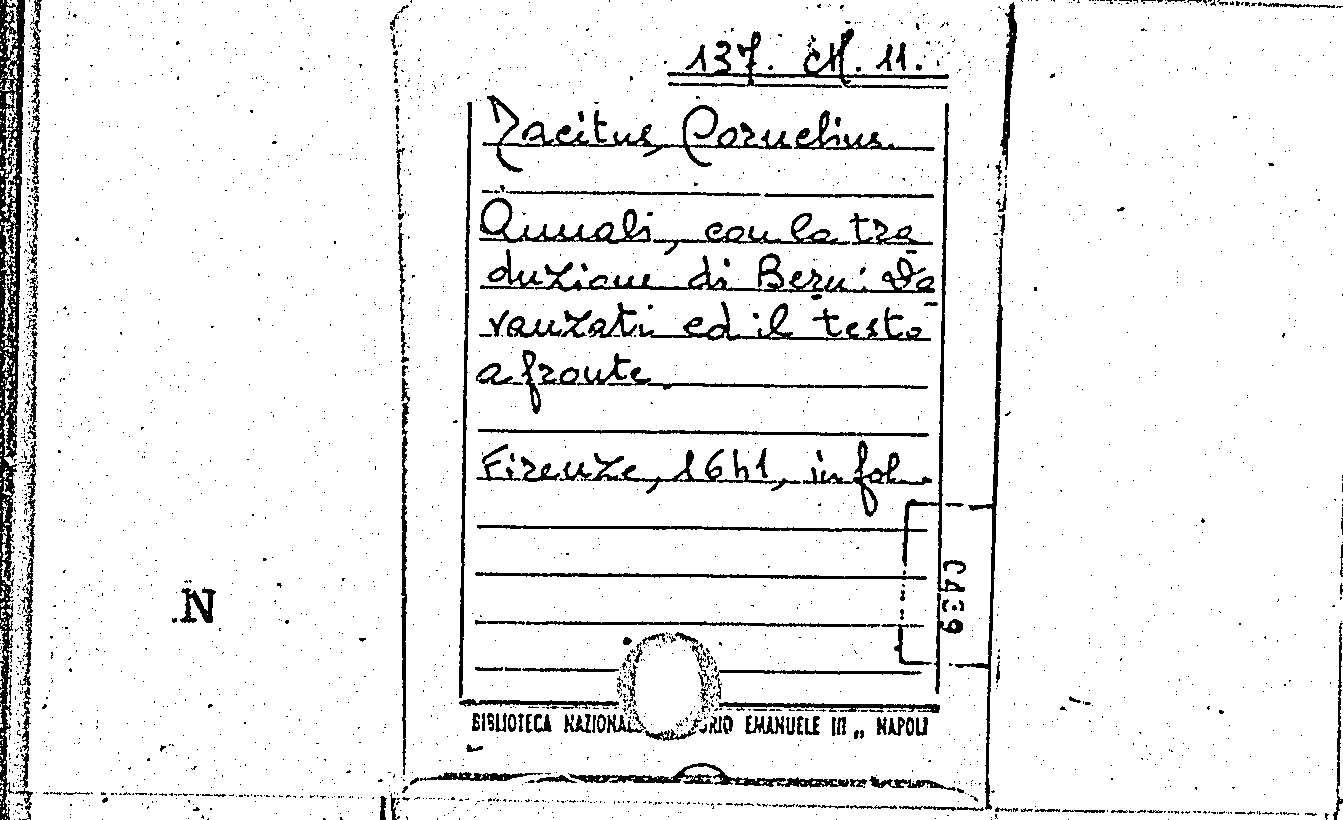 137. M. 11.
Tacitus, Cornelius.
Annali, con la tra
duzione di Bern: Da
vanzati ed il testo
a fronte.
Firenze, 1641, in fol.
N
C439
BIBLIOTECA NAZIONALE EMANUELE III „ NAPOLI